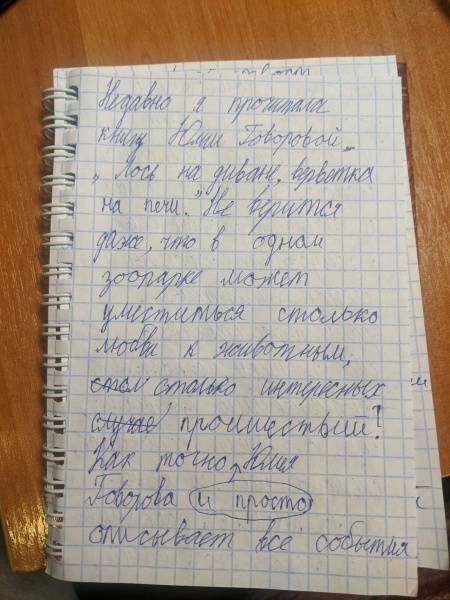 Недавно я прочитала
книгу Юлии Говоровой
„Лось на диване, верветка
на печи." Не верится
даже, что в одном
зоопарке может
уместиться столько
любви к животным,
столько интересных
случае происшествий!
Как точно, Юлия
Говорова и просто
описывает все события